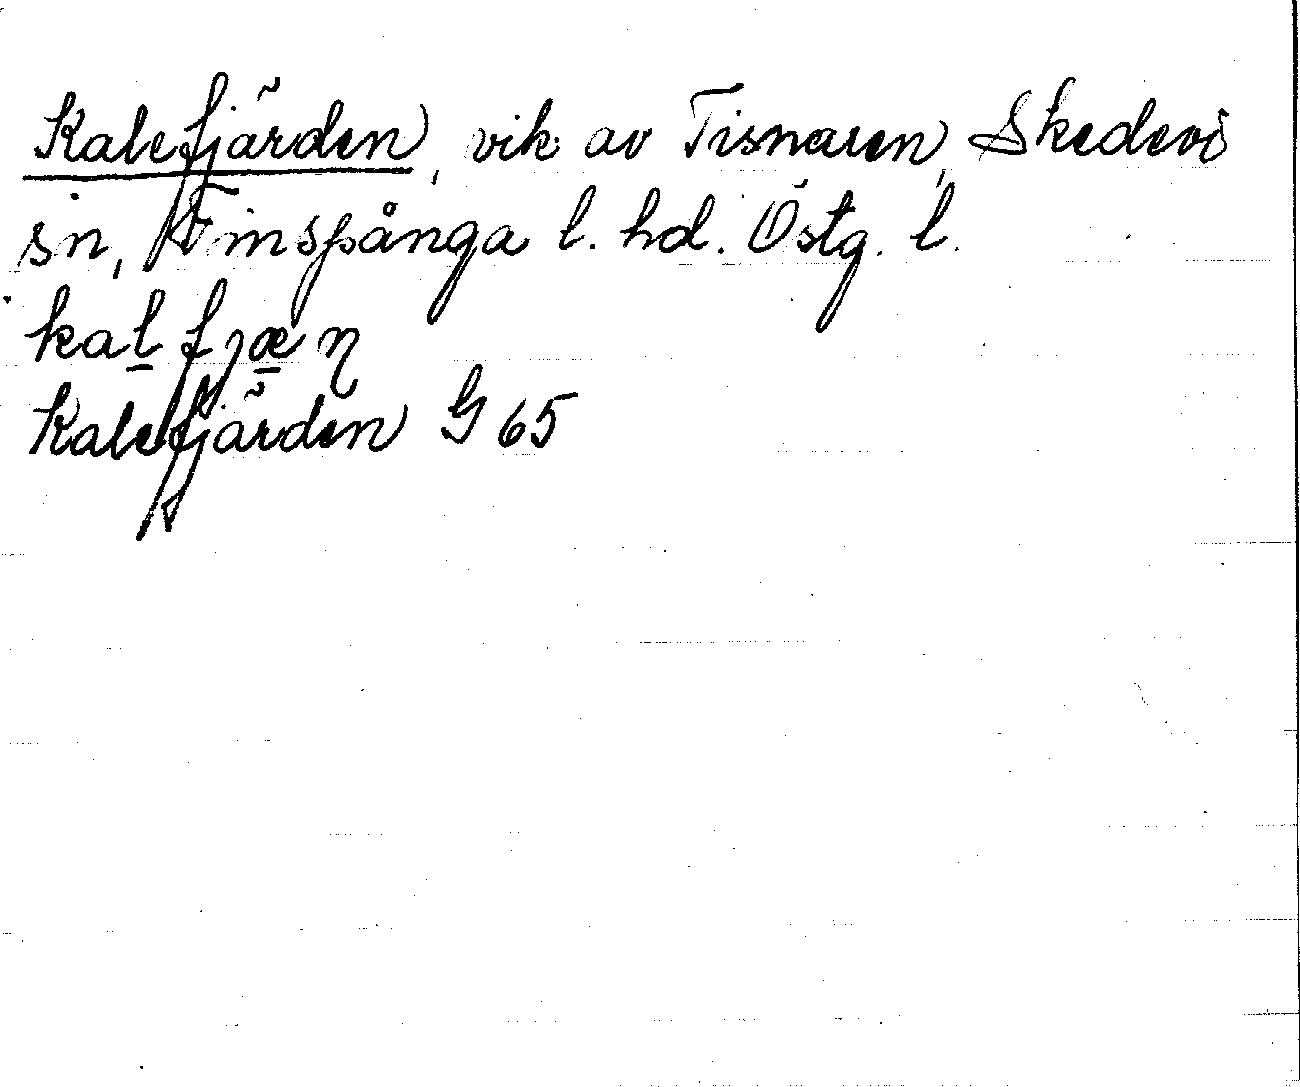 Kalefjärden, vik av Tisnaren, Skedevi
sn, Finspånga l. hd. Östg. l.
kalfjæɳ
Kalefjärden G 65